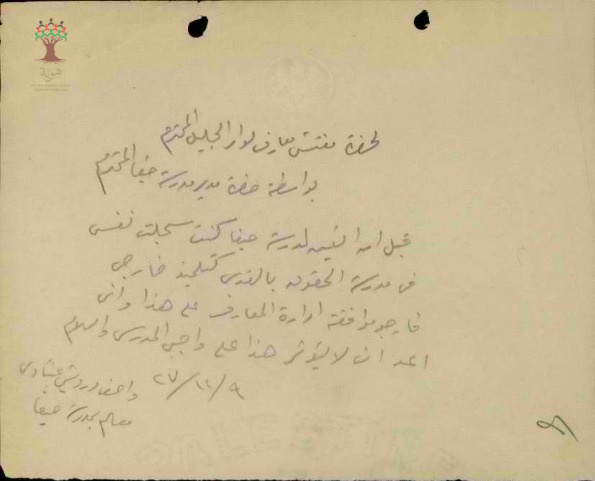 لحضرة مفتش معارف لواء الجليل المحترم
بواسطة حضرة مدير مدرسة حيفا المحترم
قبل ان لمدرسة حيفا كنت سجلت نفسي
في مدرسة الحقوق بالقدس كتلميذ خارجي
فارجو موافقة ادارة المعارف على هذا واني
اعد ان لا يؤثر هذا على واجبي المدرسي والسلام
٩/١١/٢٧
واصف درويش
معلم بمدرسة حيفا